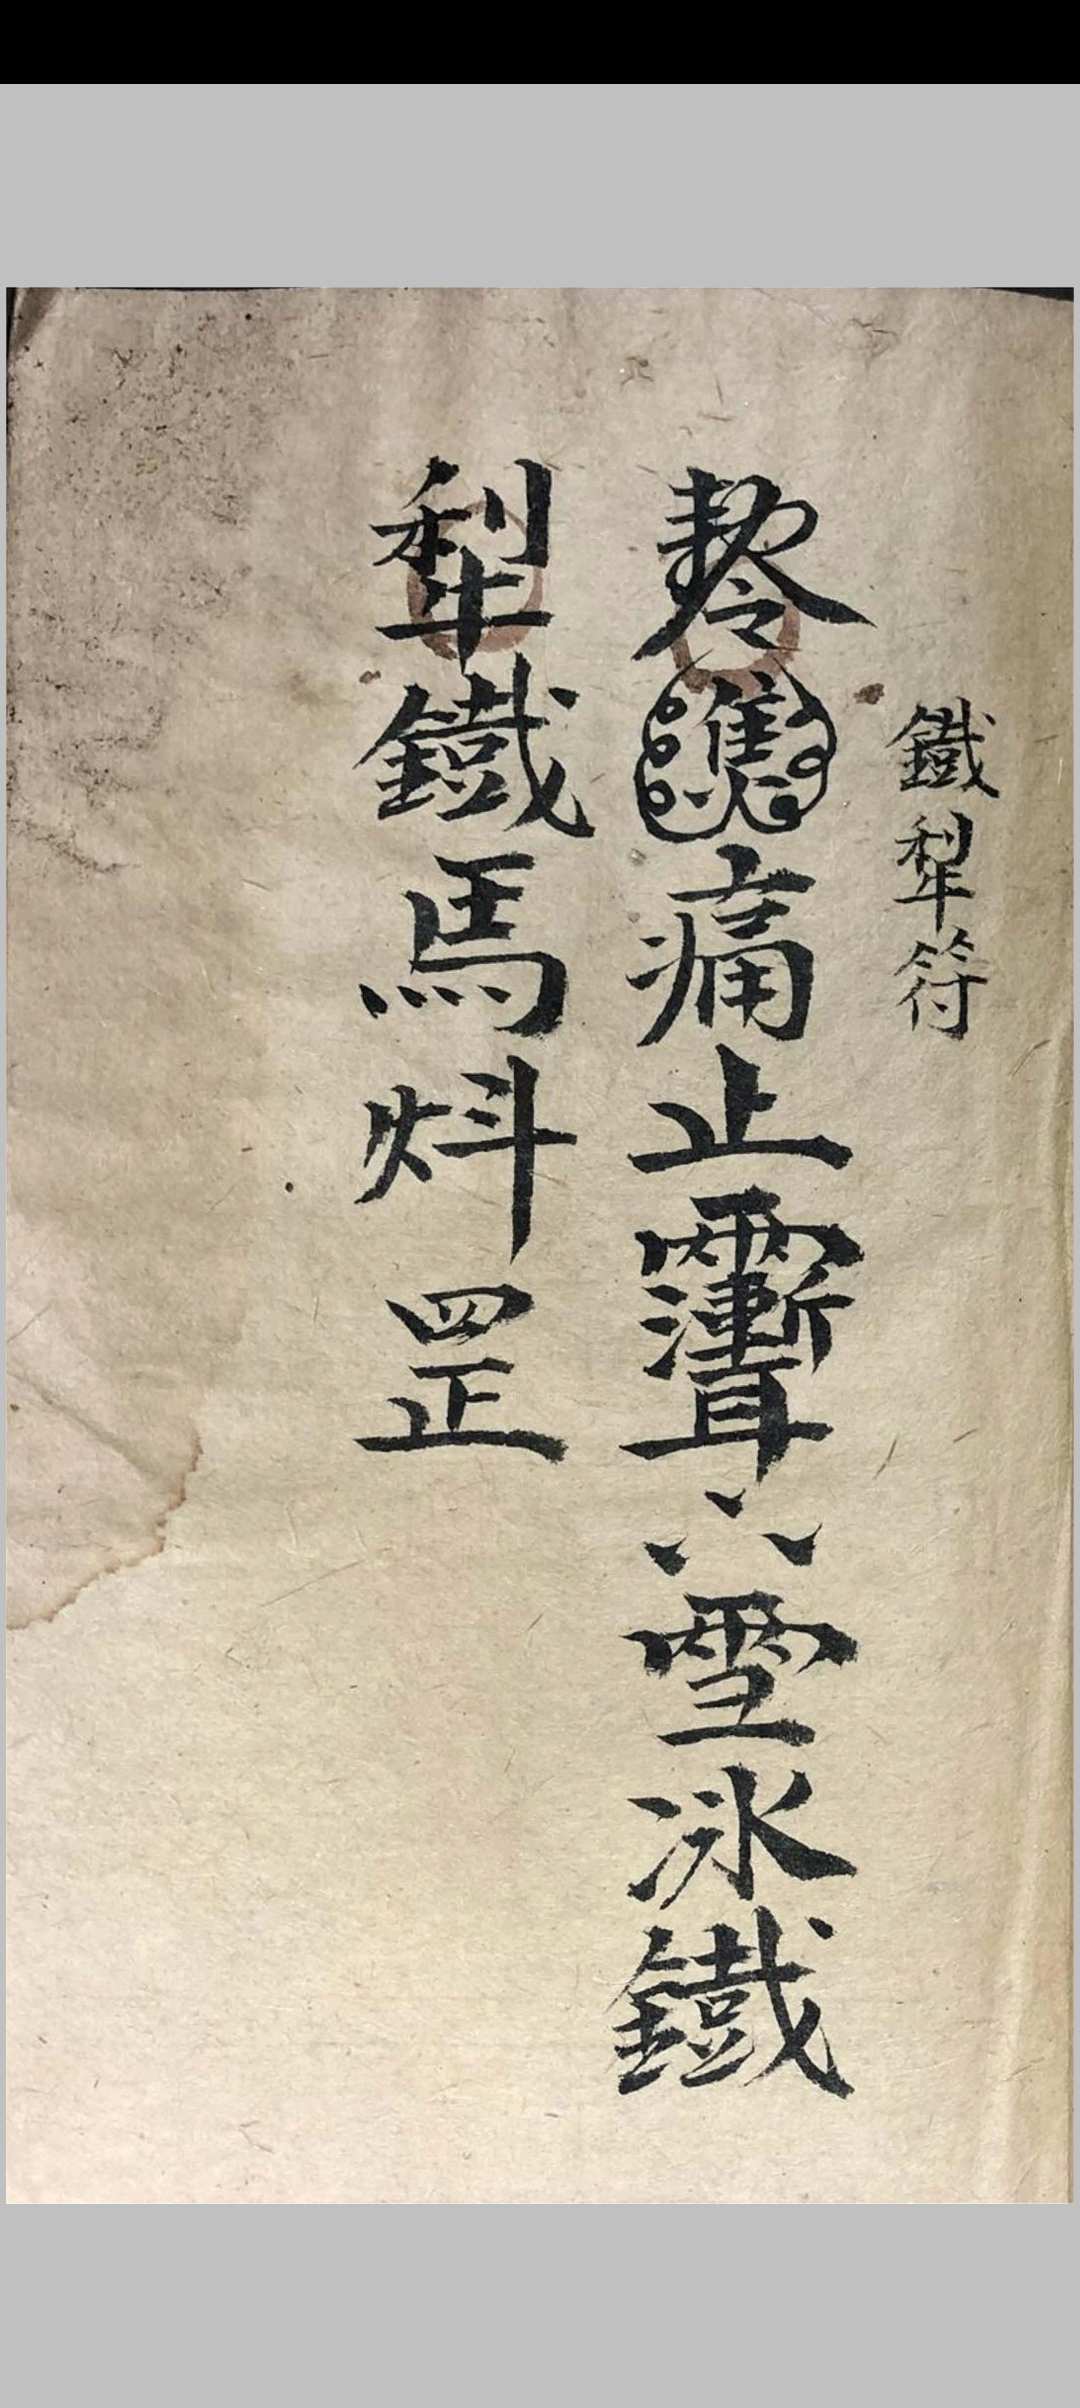 鐵犁符
痛止六雪冰鐵
犁鐵馬炓罡